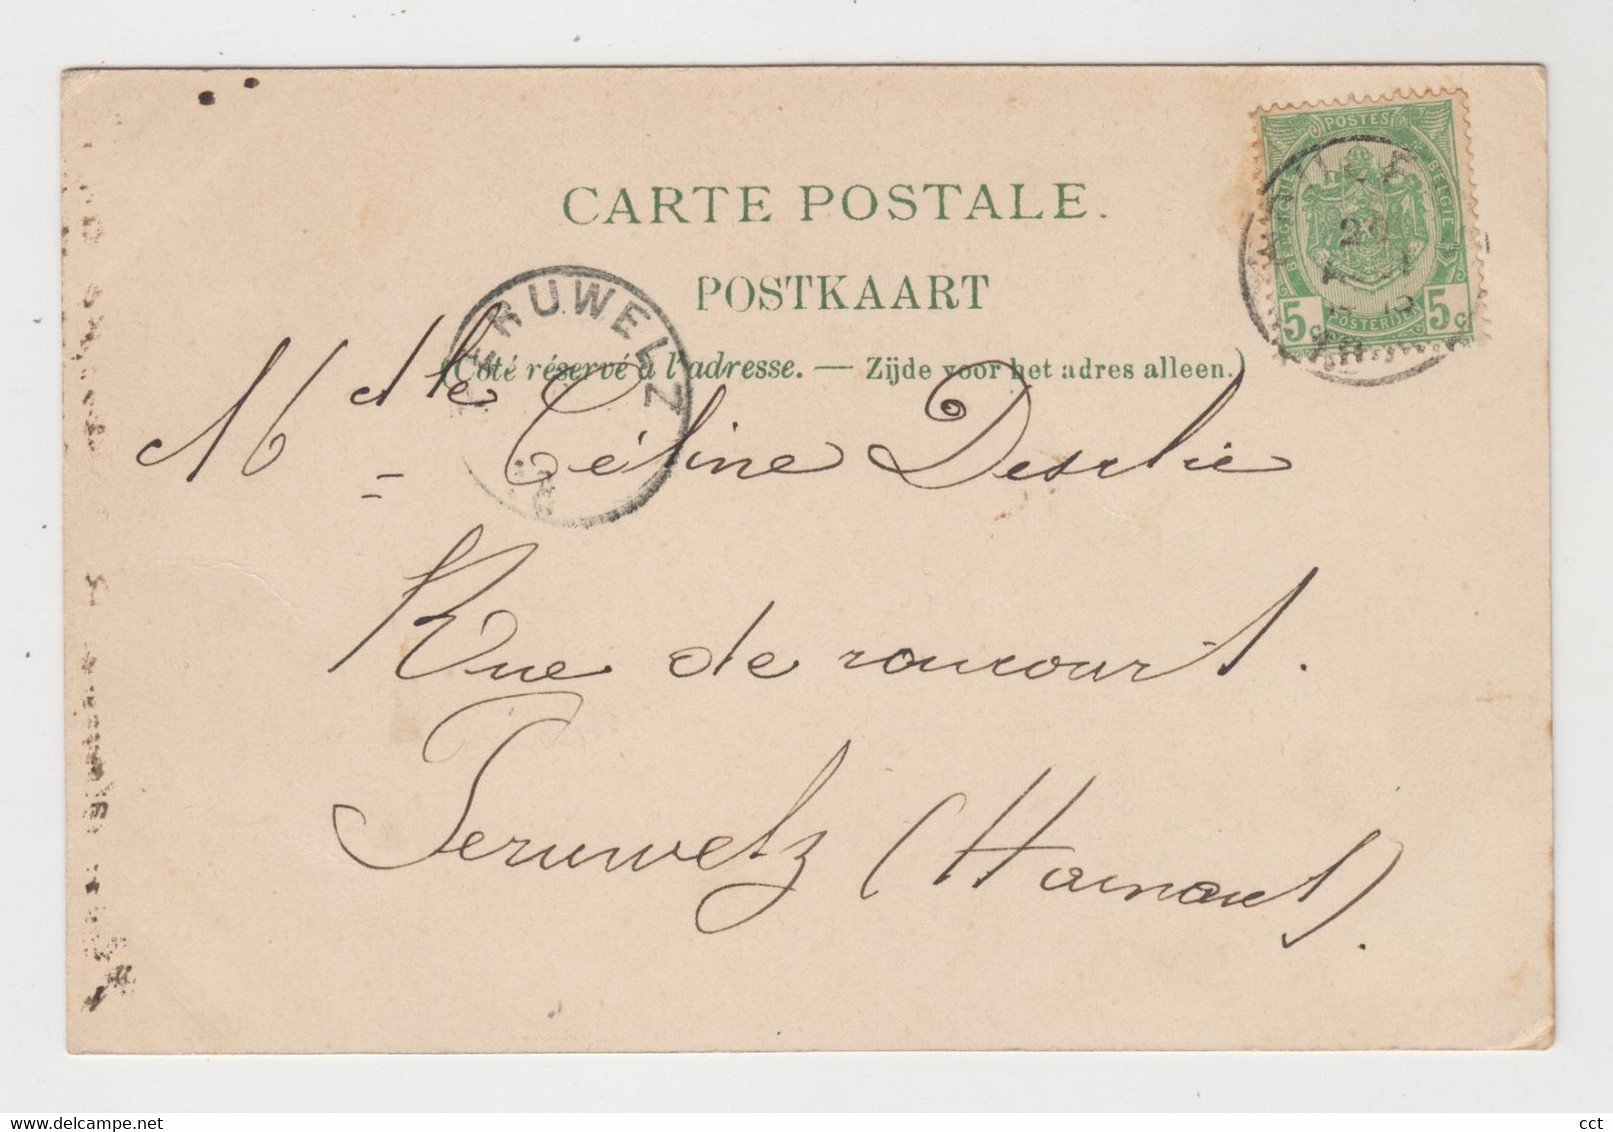 CARTE POSTALE.
POSTKAART
(Côté réservé à l'adresse. — Zijde voor het adres alleen.)
POSTES
BELGIQUE
BELGIË
POSTERIJEN
5c 5c
PERUWELZ
Mdlle Céline
Rue de roucourt.
Peruwelz (Hainaut).
cct